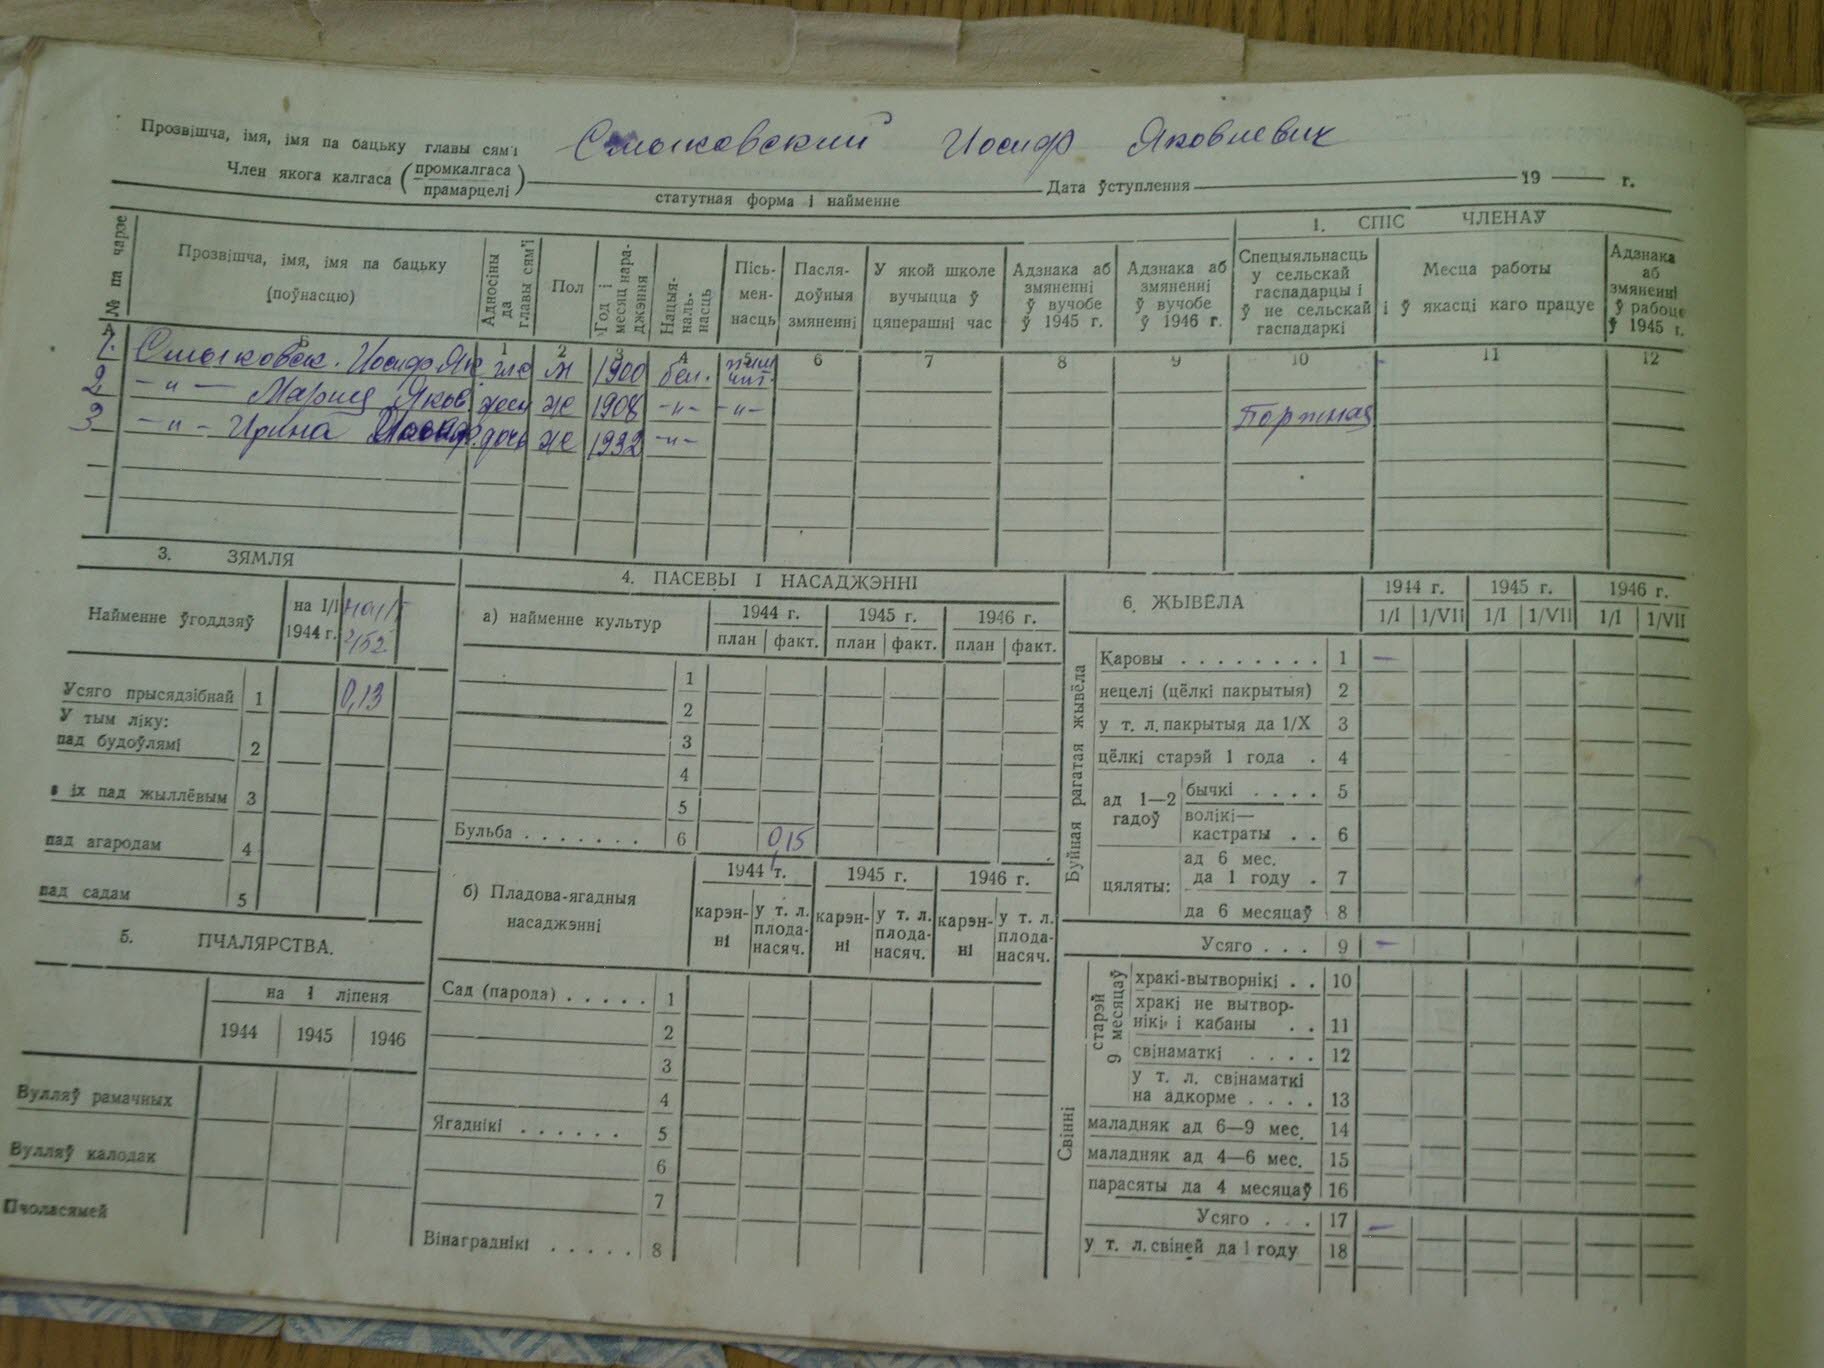 Прозвішча, імя, імя па бацьку главы сям'і Иосиф Яковлевич
Член якога калгаса (промкалгаса / прамарцелі) Дата ўступлення 19 г.
статутная форма і найменне
1. СПІС ЧЛЕНАЎ
№ па чарзе
Прозвішча, імя, імя па бацьку (поўнасцю)
Адносіны да главы сям'і
Пол
Год і месяц нараджэння
Нацыянальнасць
Пісь-мен-насць
Пасля-доўныя змяненні
У якой школе вучыцца ў цяперашні час
Адзнака аб змяненні ў вучобе ў 1945 г.
Адзнака аб змяненні ў вучобе ў 1946 г.
Спецыяльнасць у сельскай гаспадарцы і ў не сельскай гаспадаркі
Месца работы і ў якасці каго працуе
Адзнака аб змяненні ў рабоце ў 1945 г.
А Б 1 2 3 4 5 6 7 8 9 10 11 12
1. Иосиф Як м 1900 бел.
2 —"— Мария Яков. жен ж 1908 —"— —"—
3 —"— Ирина дочь ж 1932 —"—
3. ЗЯМЛЯ
Найменне ўгоддзяў на I/I 1944 г.
Усяго прысядзібнай 1 0,13
У тым ліку:
пад будоўлямі 2
з іх пад жыллёвым 3
пад агародам 4
пад садам 5
5. ПЧАЛЯРСТВА.
на 1 ліпеня
1944 1945 1946
Вулляў рамачных
Вулляў калодак
Пчоласямей
4. ПАСЕВЫ І НАСАДЖЭННІ
а) найменне культур 1944 г. 1945 г. 1946 г.
план факт. план факт. план факт.
1
2
3
4
5
Бульба . . . . . . . 6 0,15
б) Пладова-ягадныя насаджэнні 1944 г. 1945 г. 1946 г.
карэн-ні у т. л. плода-насяч. карэн-ні у т. л. плода-насяч. карэн-ні у т. л. плода-насяч.
Сад (парода) . . . . . 1
2
3
4
Ягаднікі . . . . . . 5
6
7
Вінаграднікі . . . . . 8
6. ЖЫВЁЛА 1944 г. 1945 г. 1946 г.
1/I 1/VII 1/I 1/VII 1/I 1/VII
Буйная рагатая жывёла
Каровы . . . . . . . . 1 —
нецелі (цёлкі пакрытыя) 2
у т. л. пакрытыя да 1/X 3
цёлкі старэй 1 года . 4
ад 1—2 гадоў
бычкі . . . . 5
волікі—кастраты . . 6
цяляты:
ад 6 мес. да 1 году . 7
да 6 месяцаў 8
Усяго . . . 9 —
Свінні
старэй 9 месяцаў
хракі-вытворнікі . . 10
хракі не вытвор-нікі і кабаны . . 11
свінаматкі . . . . 12
у т. л. свінаматкі на адкорме . . . . 13
маладняк ад 6—9 мес. 14
маладняк ад 4—6 мес. 15
парасяты да 4 месяцаў 16
Усяго . . . 17 —
у т. л. свіней да 1 году 18